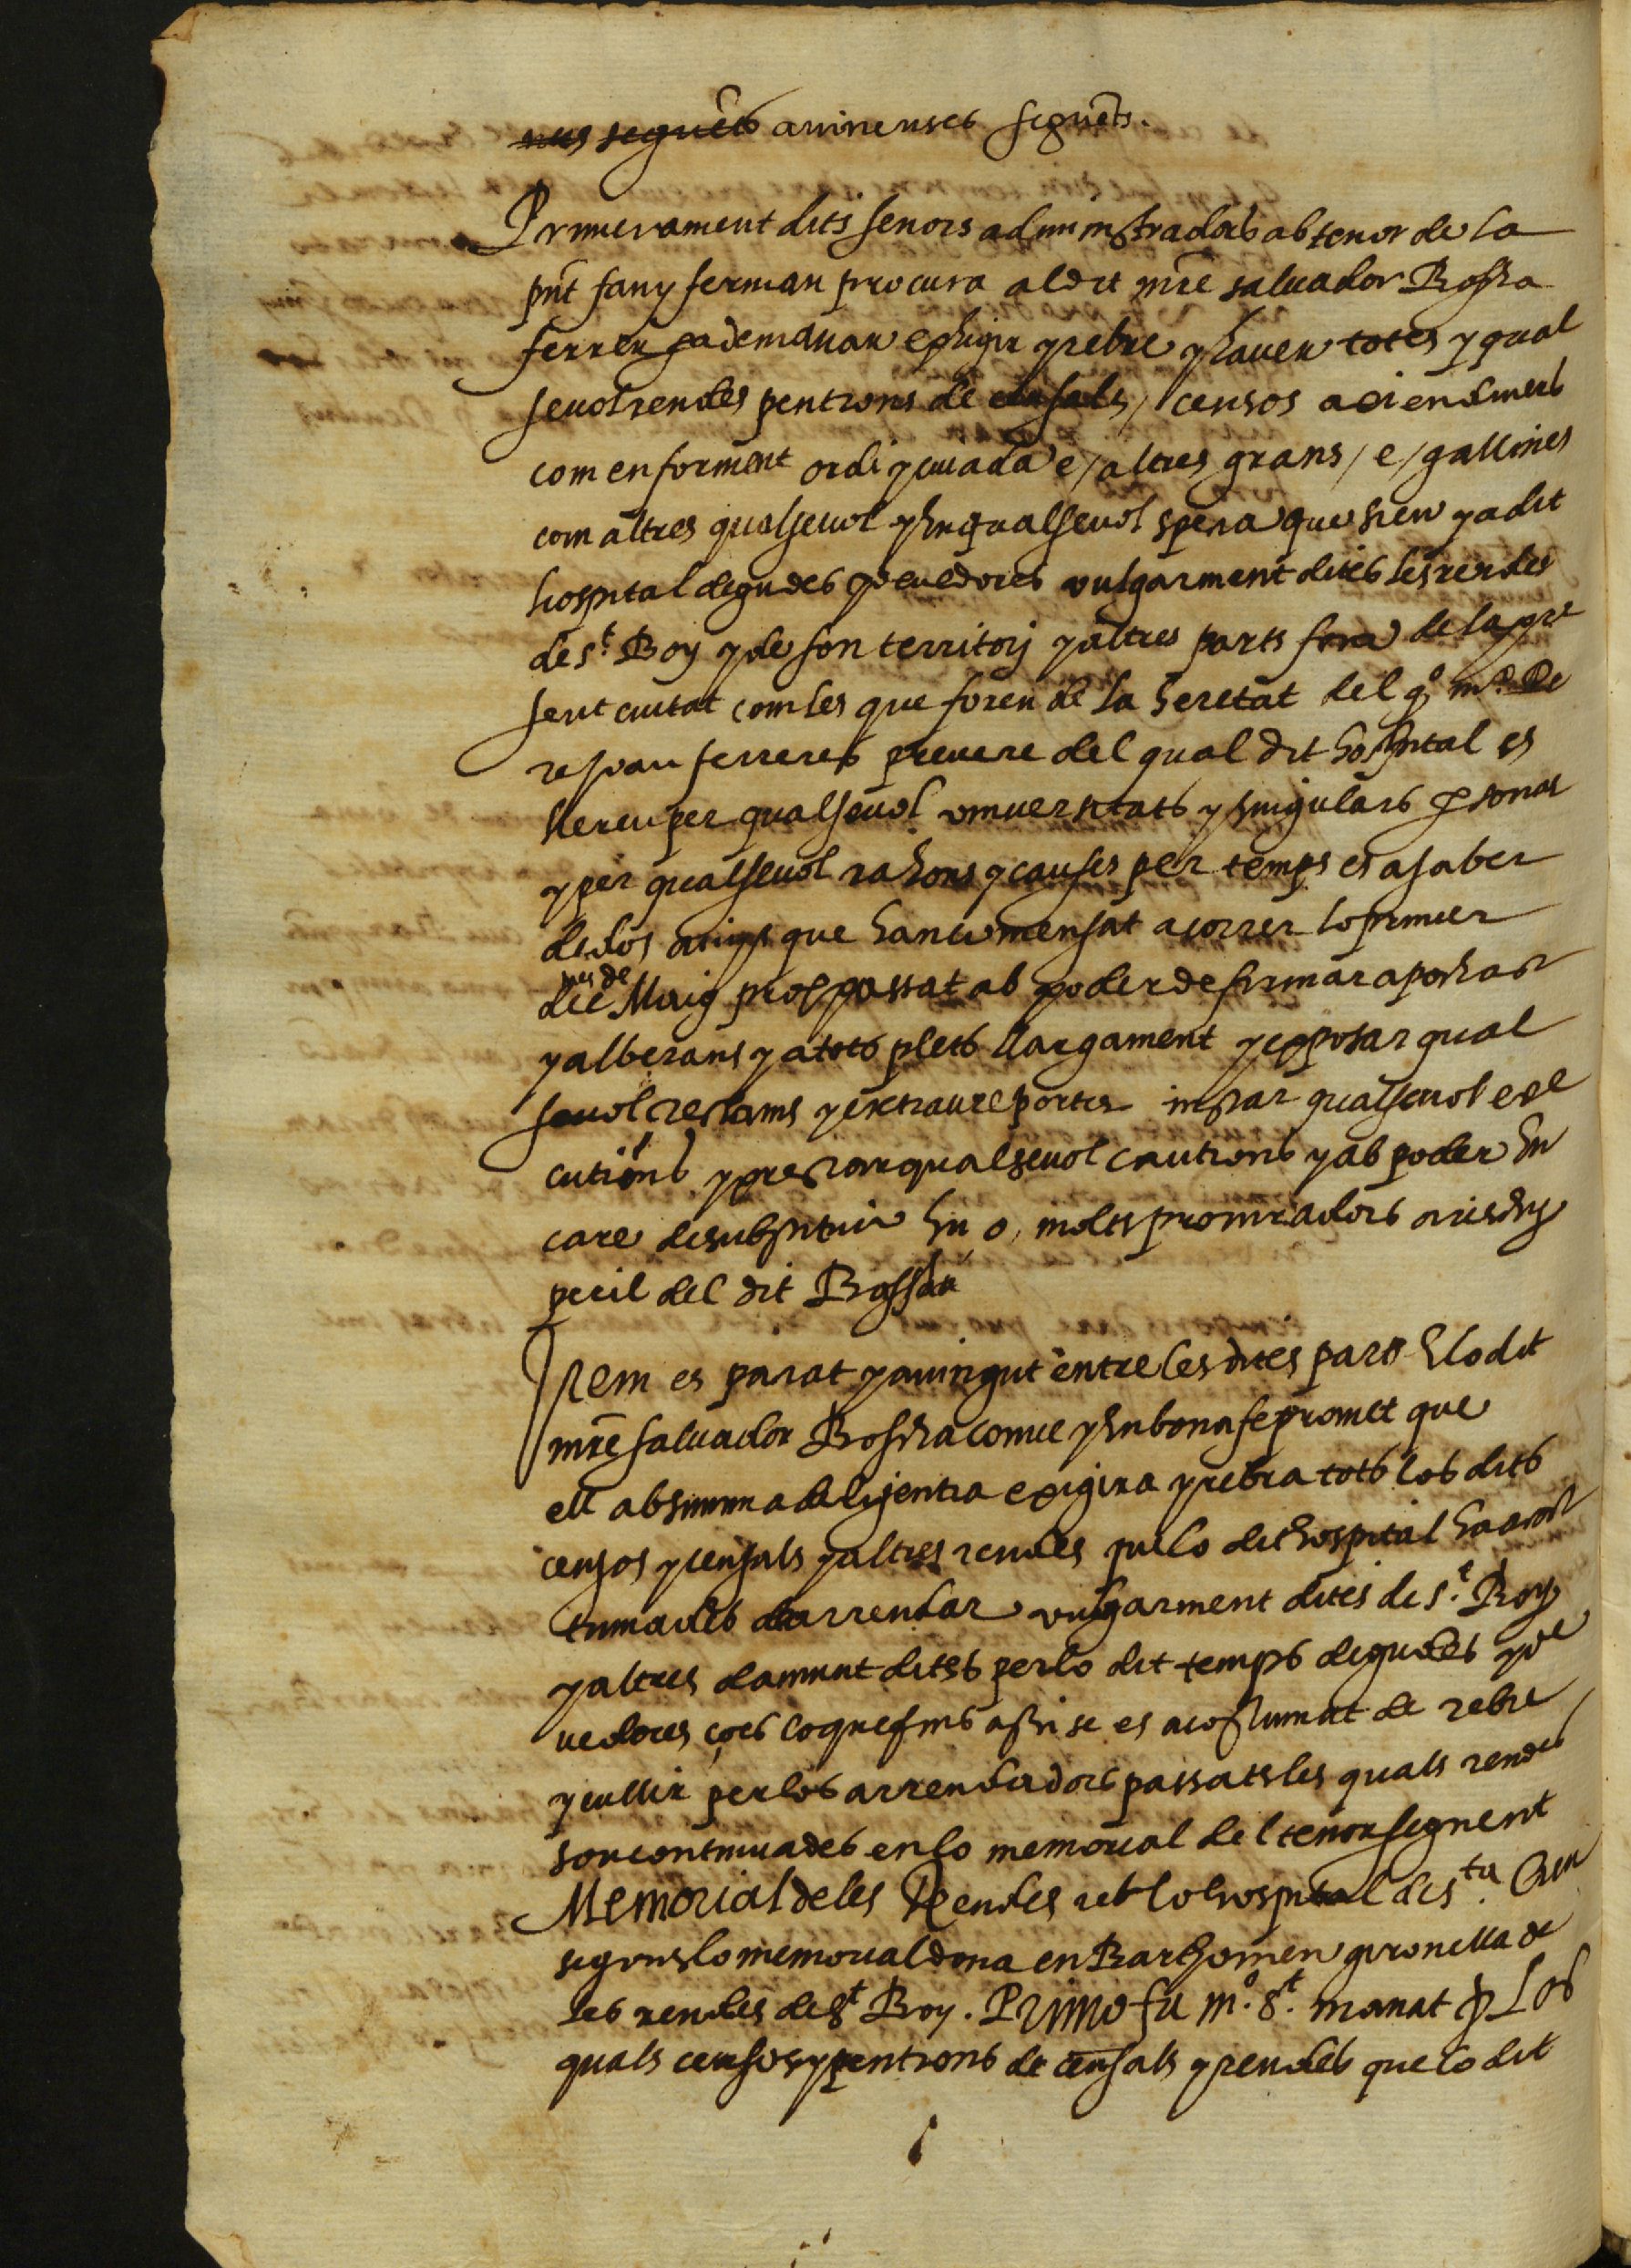 nes seguēts avinenses seguēts.
Primerament dits senors administradors ab tenor de la
pn̄t fan y ferman procura al dit mr̄e saluador Boscha
ferrer pa demanar exhigir y rebre y hauer totes y qual
seuol rendes pentions de censals / censos axi en diners
com en forment ordi y ciuada e / altres grans / e / gallines
com altres qualseuol y en qualseuol spera que sien y a dit
hospital degudes y deuedores vulgarment dites les rendes
de s.t Boy y de son territorj y altres parts fora de la pre
sent ciutat com les que foren de la heretat del q.o m.o Pe
re Joan ferreres preuere del qual dit hospital es
hereu per qualseuol vniuersitats y singulars psones
y per qualseuol rahons y causes per temps es a saber
de dos anys que han comensat a correr lo primer
die mes de Maig prop passat ab poder de firmar apochas
y albarans y a tots plets llargament y exposar qual
seuol reclams y extraure portes instar qualseuol exe
cutions y prestar qualseuol cautions y ab poder en
care de substituir hu o, molts procuradors a risch y
peril del dit Boscha
Item es patat y auingut entre les dites parts E lo dit
mr̄e saluador Boscha conue y en bona fe promet que
ell ab summa diligentia exigira y rebra tots los dits
censos y censals y altres rendes que lo dit hospital ha acos
tumades darrendar vulgarment dites de s.t Boy
y altres damunt dites per lo dit temps degudes y de
uedores ço es lo que fins assi se es acostumat de rebre
y cullir per los arrendadors passats les quals rendes
son continuades en lo memorial del tenor seguent
Memorial de les Rendes reb lo hospital de s.ta Creu
segons lo memorial dona en Barthomeu gironella de
les rendes de s.t Boy. Primo fa m.o s.t manat p Los
quals censos y pentions de censals y rendes que lo dit